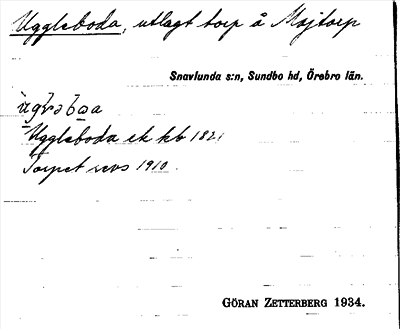 Uggleboda, utlagt torp å Mojtorp
Snavlunda s:n, Sundbo hd, Örebro län.
Uggleboda ek kb 1821
Torpet revs 1910.
GÖRAN ZETTERBERG 1934.